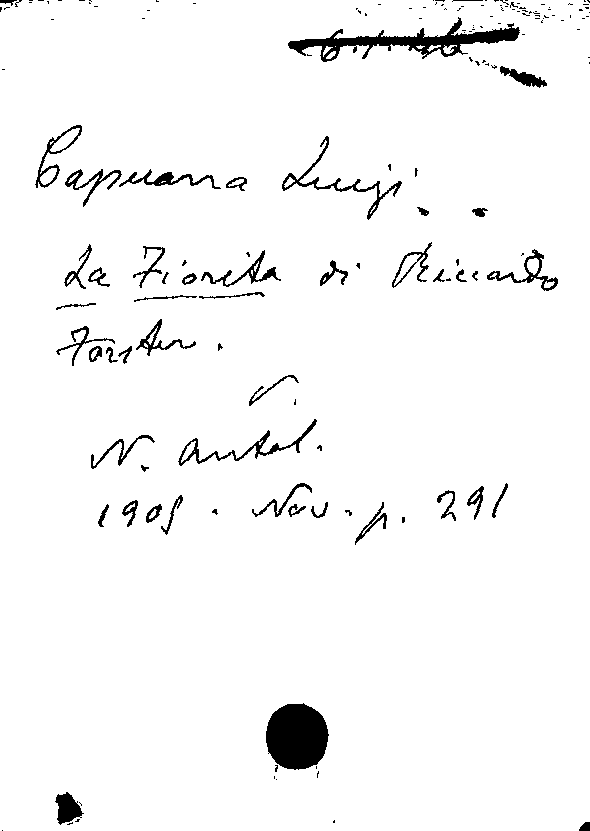 Capuana Luigi.
La Fiorita di Riccardo
Forster.
V.
N. Antol.
1905. Nov. p. 291